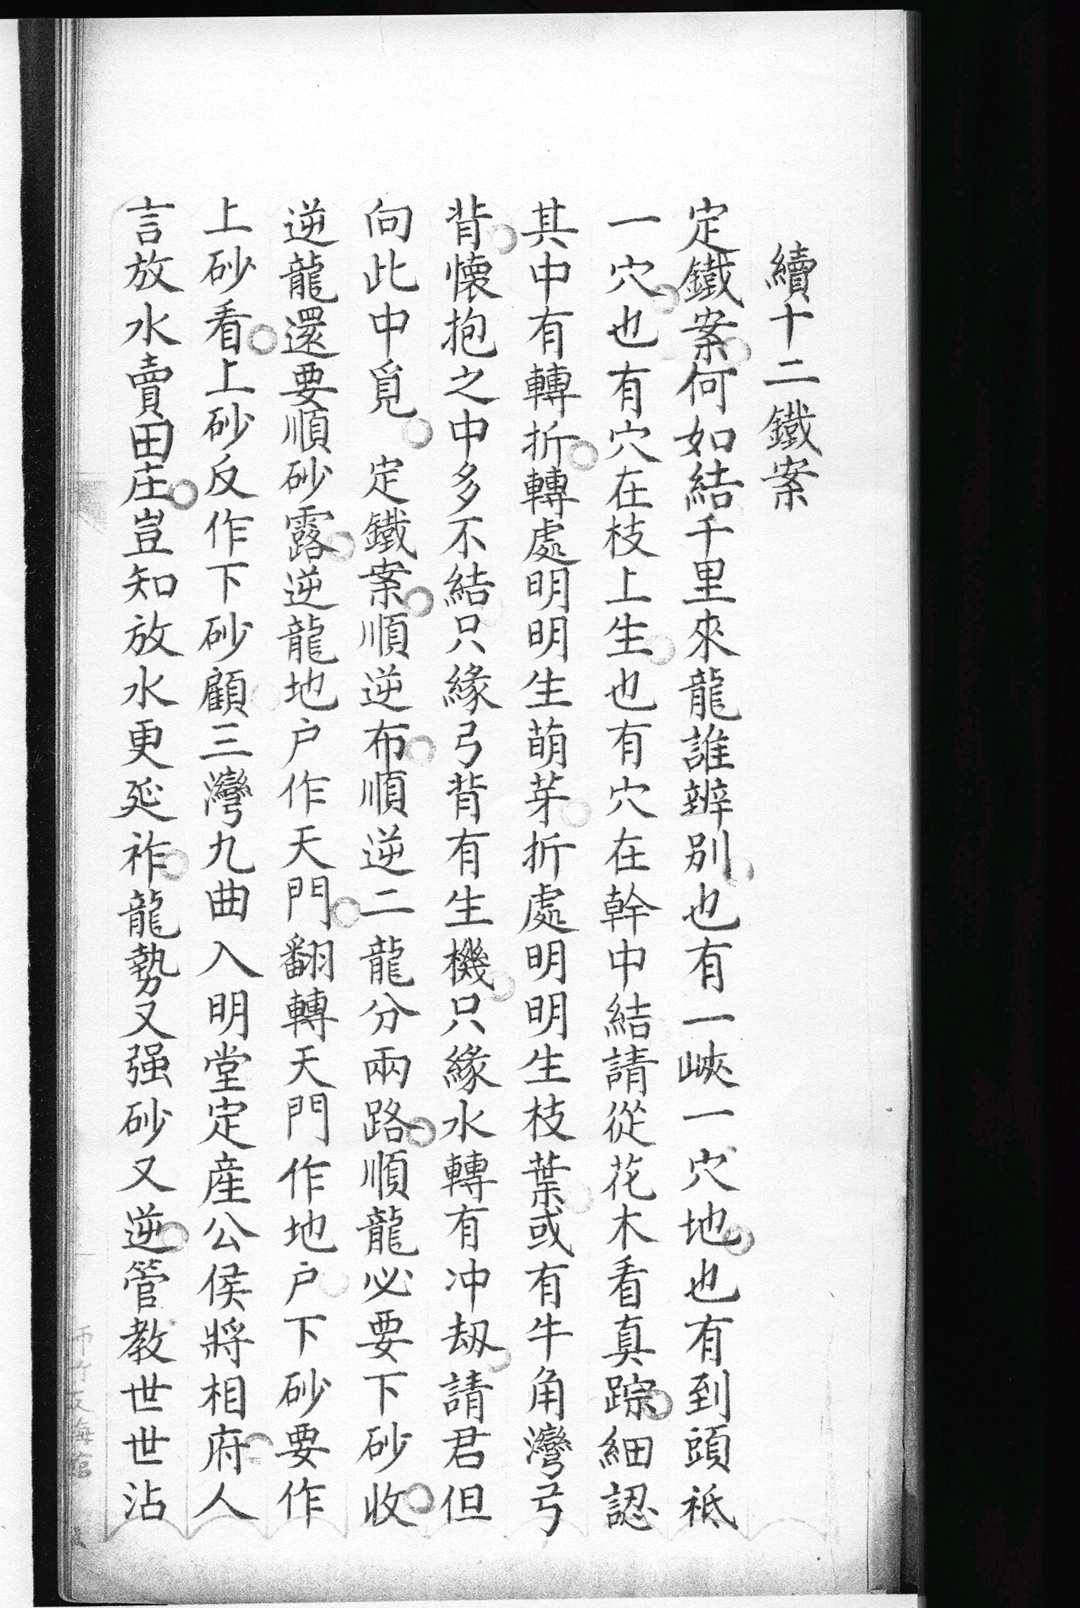 續十二鐵案
定鐵案何如結千里來龍誰辨別也有一峽一穴地也有到頭祇
一穴也有穴在枝上生也有穴在幹中結請從花木看真踪細認
其中有轉折轉處明明生萌芽折處明明生枝葉或有牛角灣弓
背懷抱之中多不結只緣弓背有生機只緣水轉有冲刼請君但
向此中覓 定鐵案順逆布順逆二龍分兩路順龍必要下砂收
逆龍還要順砂露逆龍地户作天門翻轉天門作地户下砂要作
上砂看上砂反作下砂顧三灣九曲入明堂定産公侯將相府人
言放水賣田庄豈知放水更延祚龍勢又强砂又逆管教世世沾